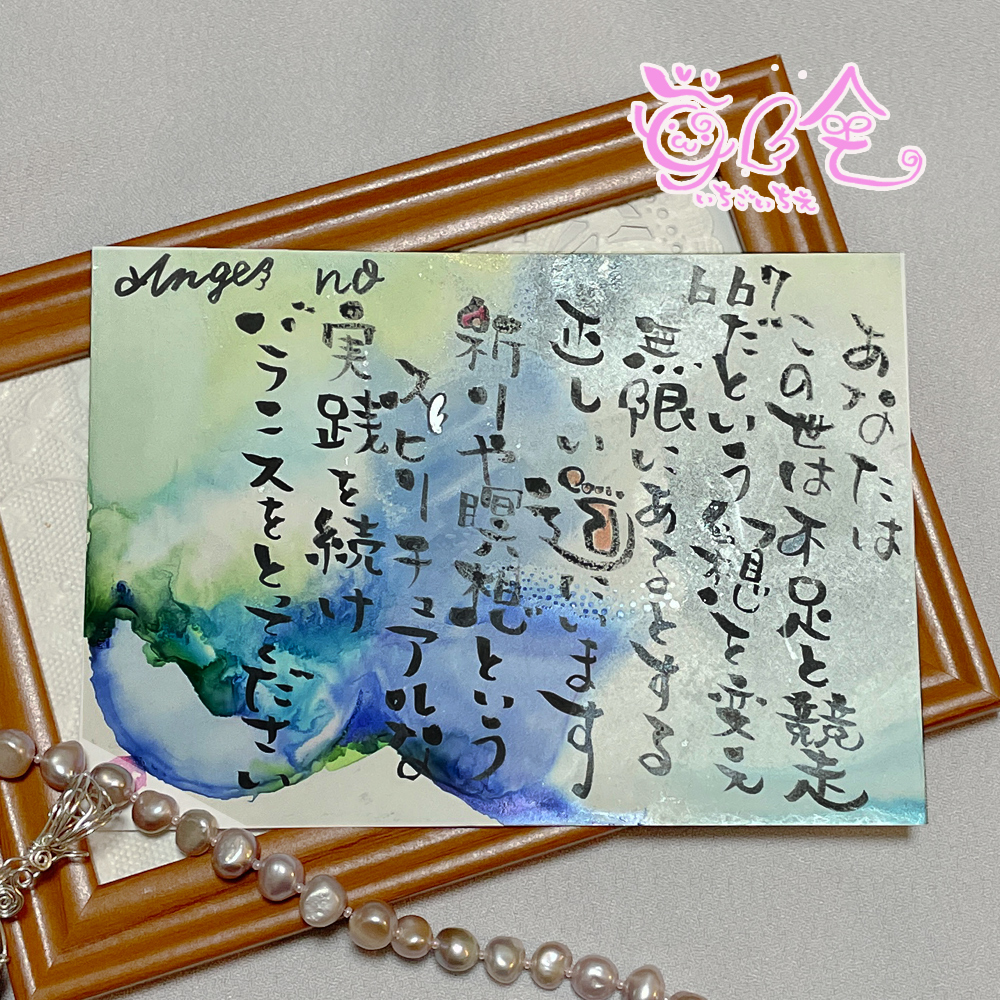 Angel no
667
あなたは
この世は不足と競走
だという幻想と変え
無限にあるとする
正しい道にいます
祈りや瞑想という
スピリチュアルな
実践を続け
バランスをとってください
いちごいちえ